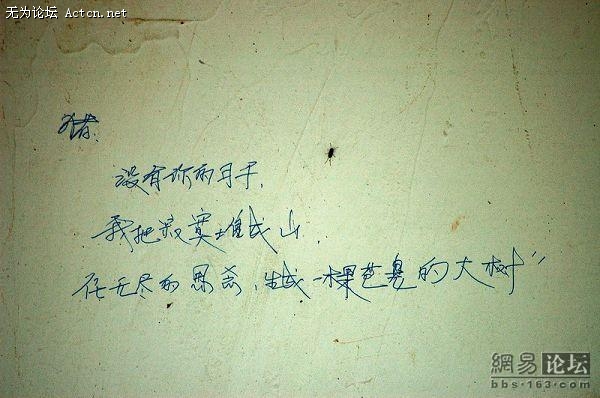 无为论坛 Actcn.net
猪:
没有你的日子,
我把寂寞堆成山,
在无尽的思念,生成一棵苍
的大树"
網易 论坛
bbs.163.com